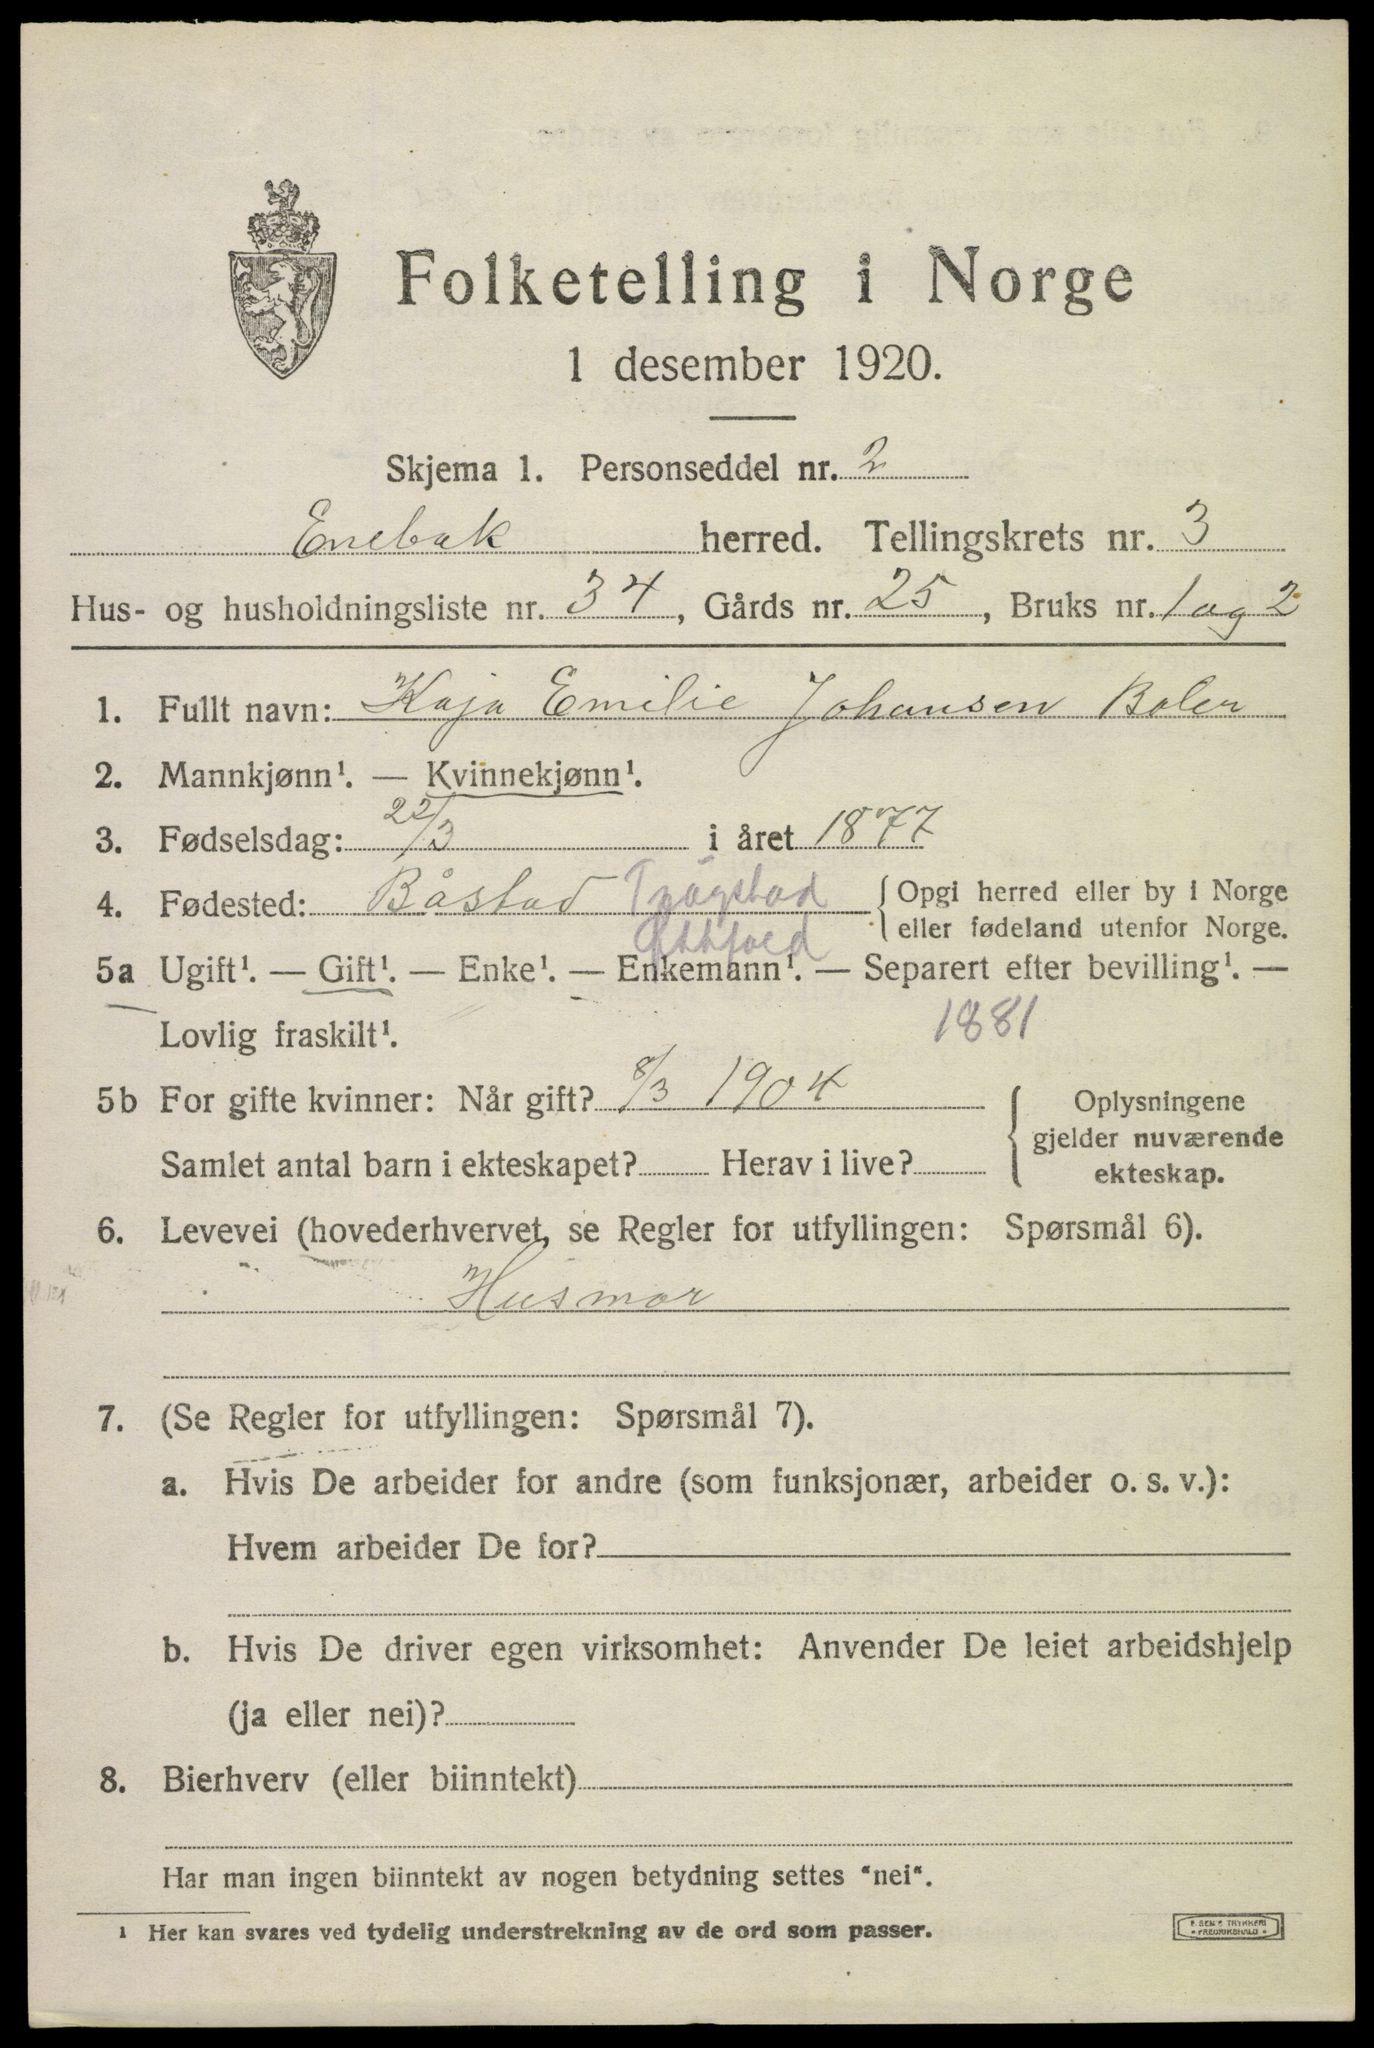 Folketelling i Norge
1 desember 1920.
Skjema 1. Personseddel nr. 2
Enebak herred. Tellingskrets nr. 3
Hus- og husholdningsliste nr. 34, Gårds nr. 25, Bruks nr. 1 og 2
1. Fullt navn: Kaja Emilie Johansen Boler
2. Mannkjønn¹. — Kvinnekjønn¹.
3. Fødselsdag: 22/3 i året 1877
4. Fødested: Båstad Trøgstad { Opgi herred eller by i Norge
eller fødeland utenfor Norge.
5a Ugift¹. — Gift¹. — Enke¹. — Enkemann¹. — Separert efter bevilling¹. —
Lovlig fraskilt¹. 1881
5b For gifte kvinner: Når gift? 8/3 1904 { Oplysningene
gjelder nuværende
Samlet antal barn i ekteskapet? Herav i live? ekteskap.
6. Levevei (hovederhvervet, se Regler for utfyllingen: Spørsmål 6).
Husmor
7. (Se Regler for utfyllingen: Spørsmål 7).
a. Hvis De arbeider for andre (som funksjonær, arbeider o. s. v.):
Hvem arbeider De for?
b. Hvis De driver egen virksomhet: Anvender De leiet arbeidshjelp
(ja eller nei)?
8. Bierhverv (eller biinntekt)
Har man ingen biinntekt av nogen betydning settes "nei".
¹ Her kan svares ved tydelig understrekning av de ord som passer.
TRYKKERI
FREDRIKSHALD